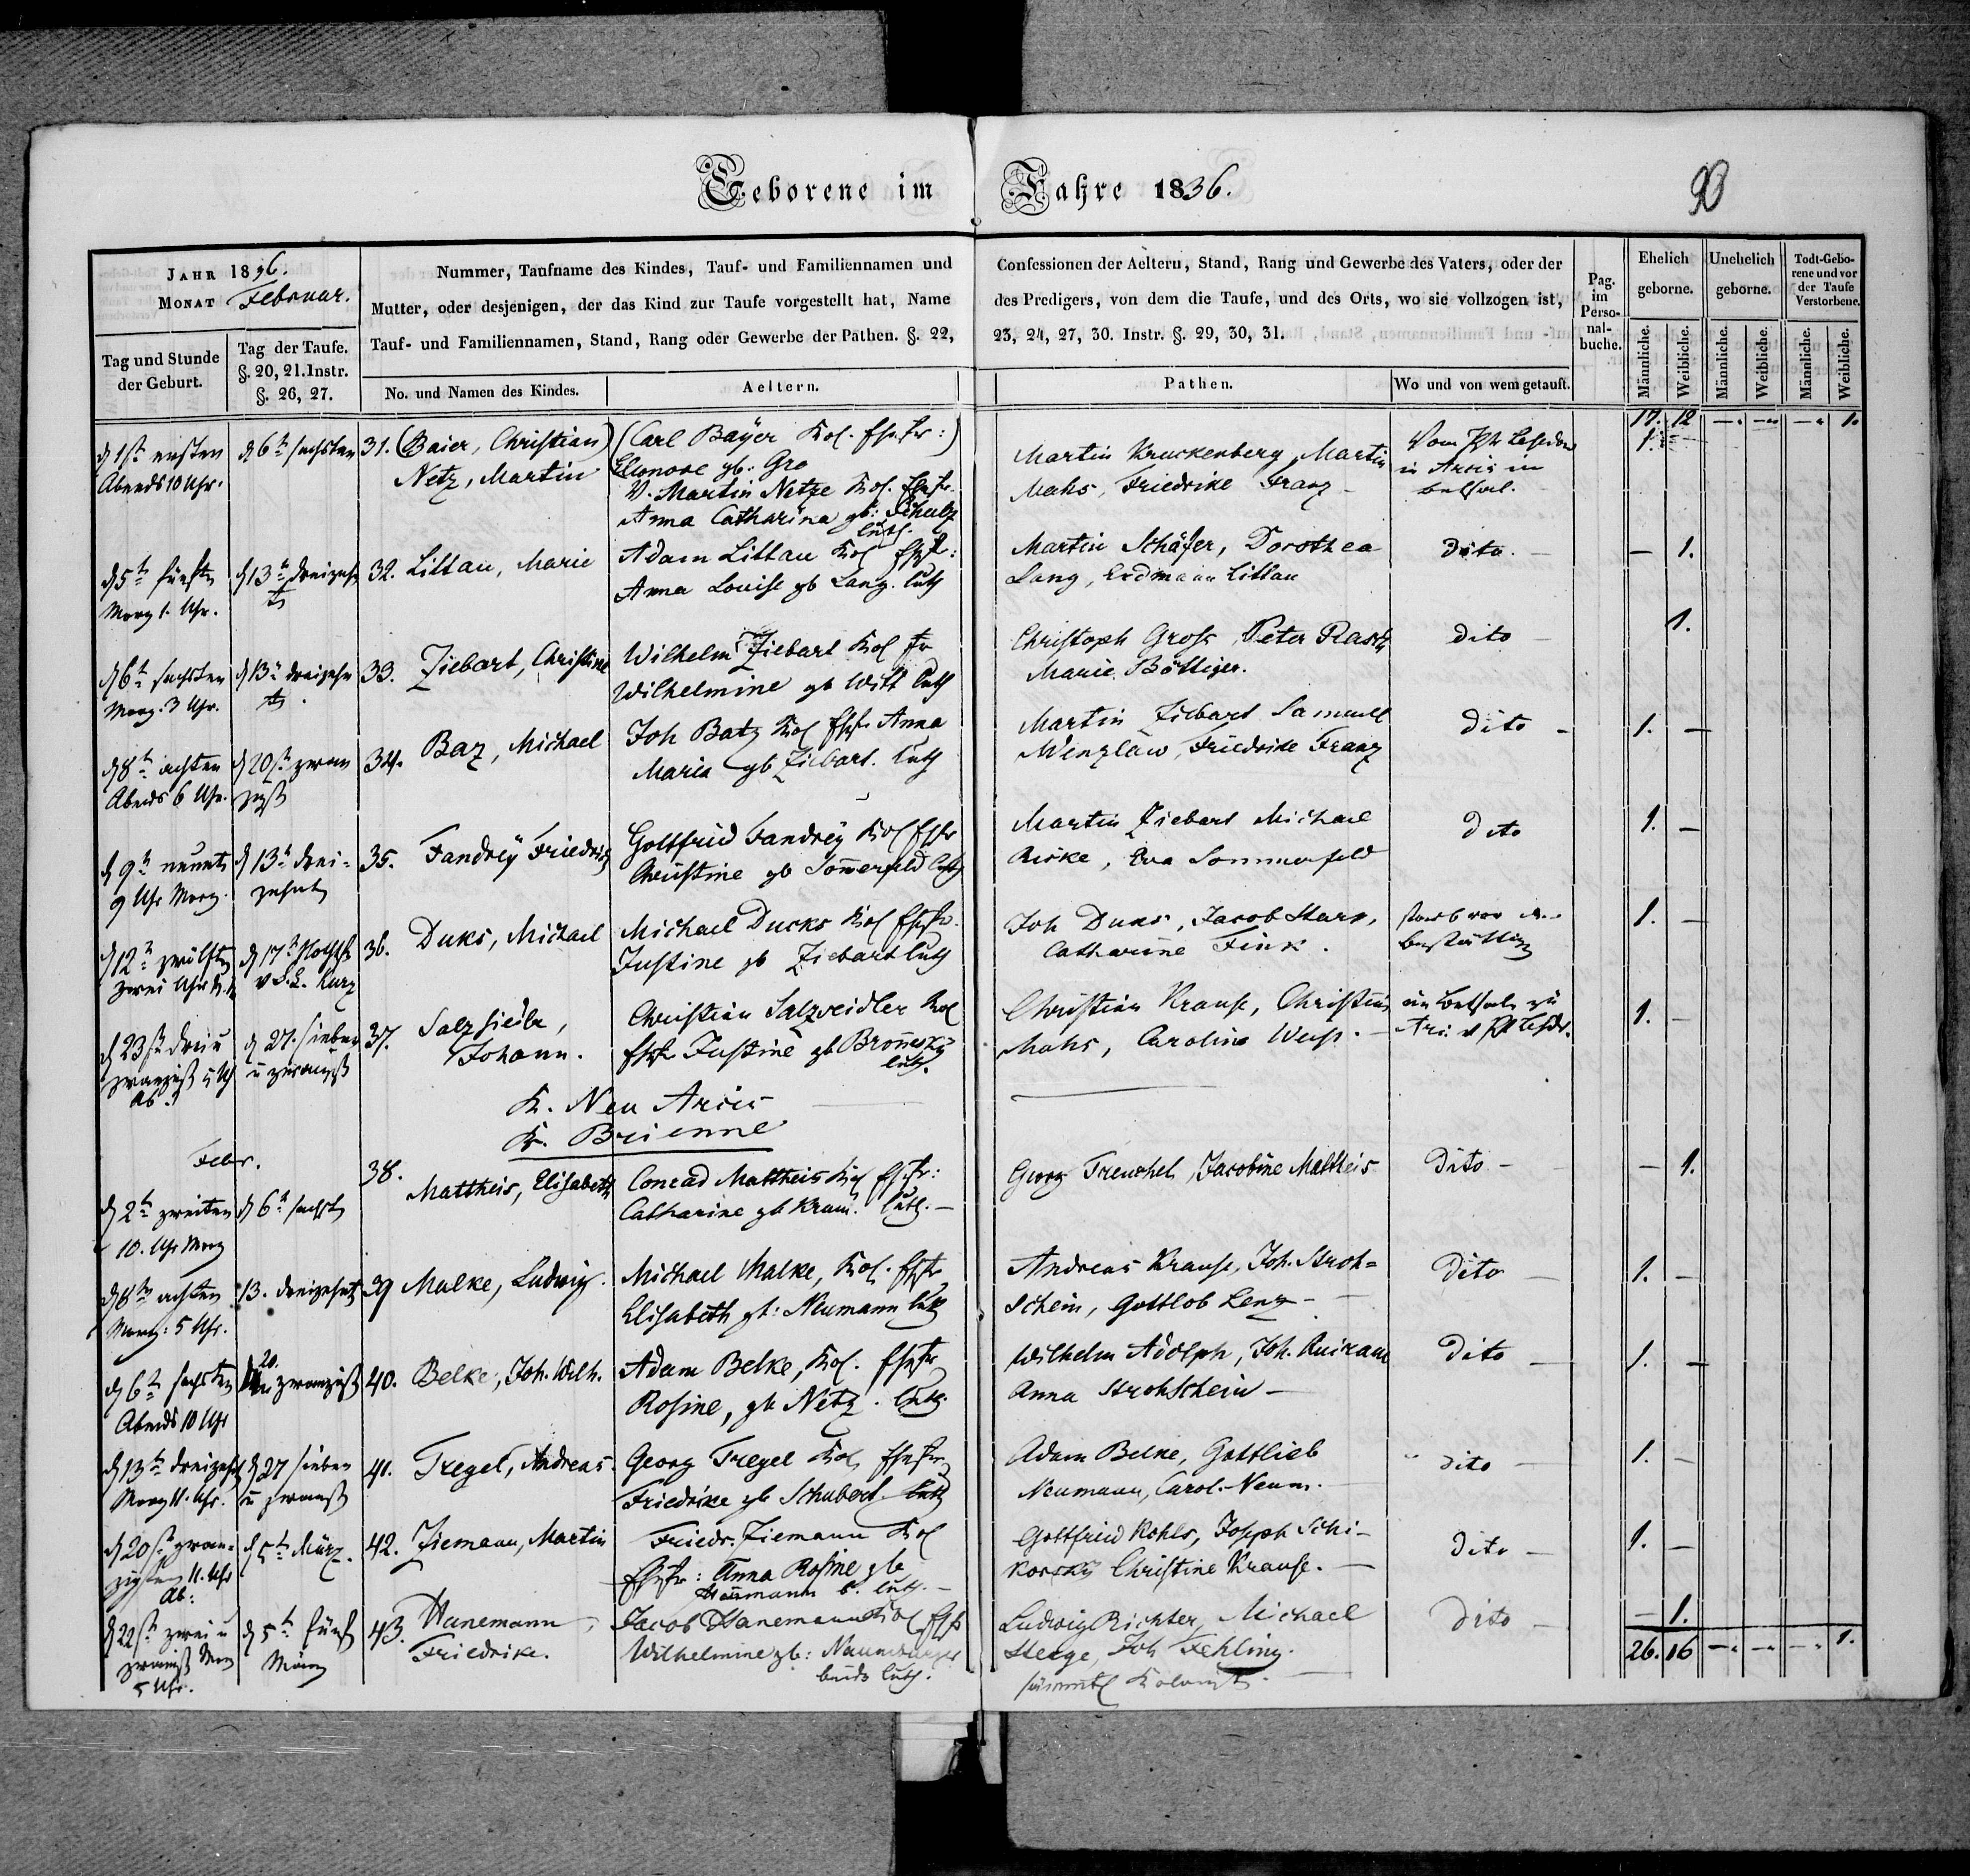 Geborene im Jahre 1836.
90
JAHR 1836.
MONAT Februar.
Tag und Stunde der Geburt.
Tag der Taufe. §. 20, 21. Instr. §. 26, 27.
Nummer, Taufname des Kindes, Tauf- und Familiennamen und
Mutter, oder desjenigen, der das Kind zur Taufe vorgestellt hat, Name
Tauf- und Familiennamen, Stand, Rang oder Gewerbe der Pathen. §. 22,
No. und Namen des Kindes.
Aeltern.
Confessionen der Aeltern, Stand, Rang und Gewerbe des Vaters, oder der
des Predigers, von dem die Taufe, und des Orts, wo sie vollzogen ist,
23, 24, 27, 30. Instr. §. 29, 30, 31.
Pathen.
Wo und von wem getauft.
Pag. im Personalbuche.
Ehelich geborne.
Unehelich geborne.
Todt-Geborene und vor der Taufe Verstorbene.
Männliche. Weibliche. Männliche. Weibliche. Männliche. Weibliche.
17. 12 —. —. —. 1.
d 1st ersten
Abends 10 Uhr.
d 6t sechsten
31. (Baier, Christian)
Netz, Martin
(Carl Bayer Kol. Ehefr:)
Eleonore gb: Gro
V. Martin Netze Kol. Ehefr.
Anna Catharina gb: Schulz
luth.
Martin Kruckenberg, Martin
Mahs, Friedrike Franz
in Arcis im
Bethsal.
1. —
d 5t fünften
Morg 1. Uhr.
d 13t dreizehn
t
32. Littau, Marie
Adam Littau Kol Ehfr:
Anna Louise gb Lang. luth
Martin Schäfer, Dorothea
Lang, Erdmann Littau
dito. —
— 1.
d 6t sechsten
Morg. 3 Uhr.
d 13t dreizehn
t.
33. Ziebart, Christine
Wilhelm Ziebart Kol fr
Wilhelmine gb Witt luth
Christoph Gross, Peter Rasch
Marie Böttiger.
dito —
1.
d 8t achten
Abends 6 Uhr.
d 20st zwan
zigst
34. Baz, Michael
Joh Batz Kol Ehfr Anna
Maria gb Ziebart. luth
Martin Ziebart Samuel
Wenzlaw, Friedrike Franz
dito —
1. —
d 9t neunten
9 Uhr Morg.
d 13t drei-
zehnt
35. Fandrey Friedrich
Gottfried Fandrey Kol Ehfr
Christine gb Somerfeld luth
Martin Ziebart Michael
Riske, Eva Sommerfeld
dito
1. —
d 12t zwölften
zwei Uhr
d 17t Nothtf
v S.L. Kurz
36. Duks, Michael
Michael Ducks Kol Ehfr.
Justine gb Ziebart luth
Joh Duks, Jacob Stars,
Catharine Fink.
starb vor
Bestättig
1. —
d 23st drei u
zwanzigst 5 Uh
Ab.
d 27. sieben
u zwanzigst
37. Salzsiedler,
Johann.
Christian Salzseidler Kol
Ehfr Justine gb
luth.
Christian Krause, Christian
Mahs, Caroline Weiss. —
im Bethsale zu
1. —
K. Neu Arcis
K. Brienne
Febr.
d 2t zweiten
10. Uhr Morg
d 6t sechst
38. Mattheis, Elisabeth
Conrad Mattheis Kol Ehfr:
Catharine gb Kram. luth. —
Georg Treuchel, Jacobine Mattheis
dito —
— 1.
d 8ten achten
Morg: 5 Uhr.
13. dreizehnt
39 Malke, Ludwig.
Michael Malke, Kol. Ehfr
Elisabeth gb: Neumann luth
Andreas Krause, Joh. Stroh-
schein, Gottlob Lenz —
dito —
1. —
d 6t sechsten
Abends 10 Uhr
20.
zwanzigst
40. Belke, Joh. Wilh.
Adam Belke, Kol. Ehfr
Rosine, gb Netz. luth.
Wilhelm Adolph, Joh.
Anna Strohschein —
dito —
1. —
d 13t dreizehnt
Morg 11. Uhr.
d 27 sieben
u zwanzigst
41. Tregel, Andreas.
Georg Tregel Kol. Ehefr.
Friedrike gb Schubert luth
Adam Belke, Gottlieb
Neumann, Carol. Neum. —
dito —
1. —
d 20st zwan-
zigsten 11. Uhr
Ab:
d 5t März.
42. Ziemann, Martin
Friedr. Ziemann Kol
Ehfr: Anna Rosine gb
b. luth. —
Gottfried Kohls, Joseph Schi-
korsky Christine Krause. —
dito —
1. —
d 22st zwei u
zwanzigst Morg
5 Uhr.
d 5t fünft
März
43. Hanemann,
Friedrike.
Jacob Hanemann Kol Ehfr
Wilhelmine gb:
beide luth.
Ludwig Richter, Michael
Sterge, Joh Fehling.
sämmtl Kolonist. —
dito —
— 1.
26. 16 —. —. —. 1.